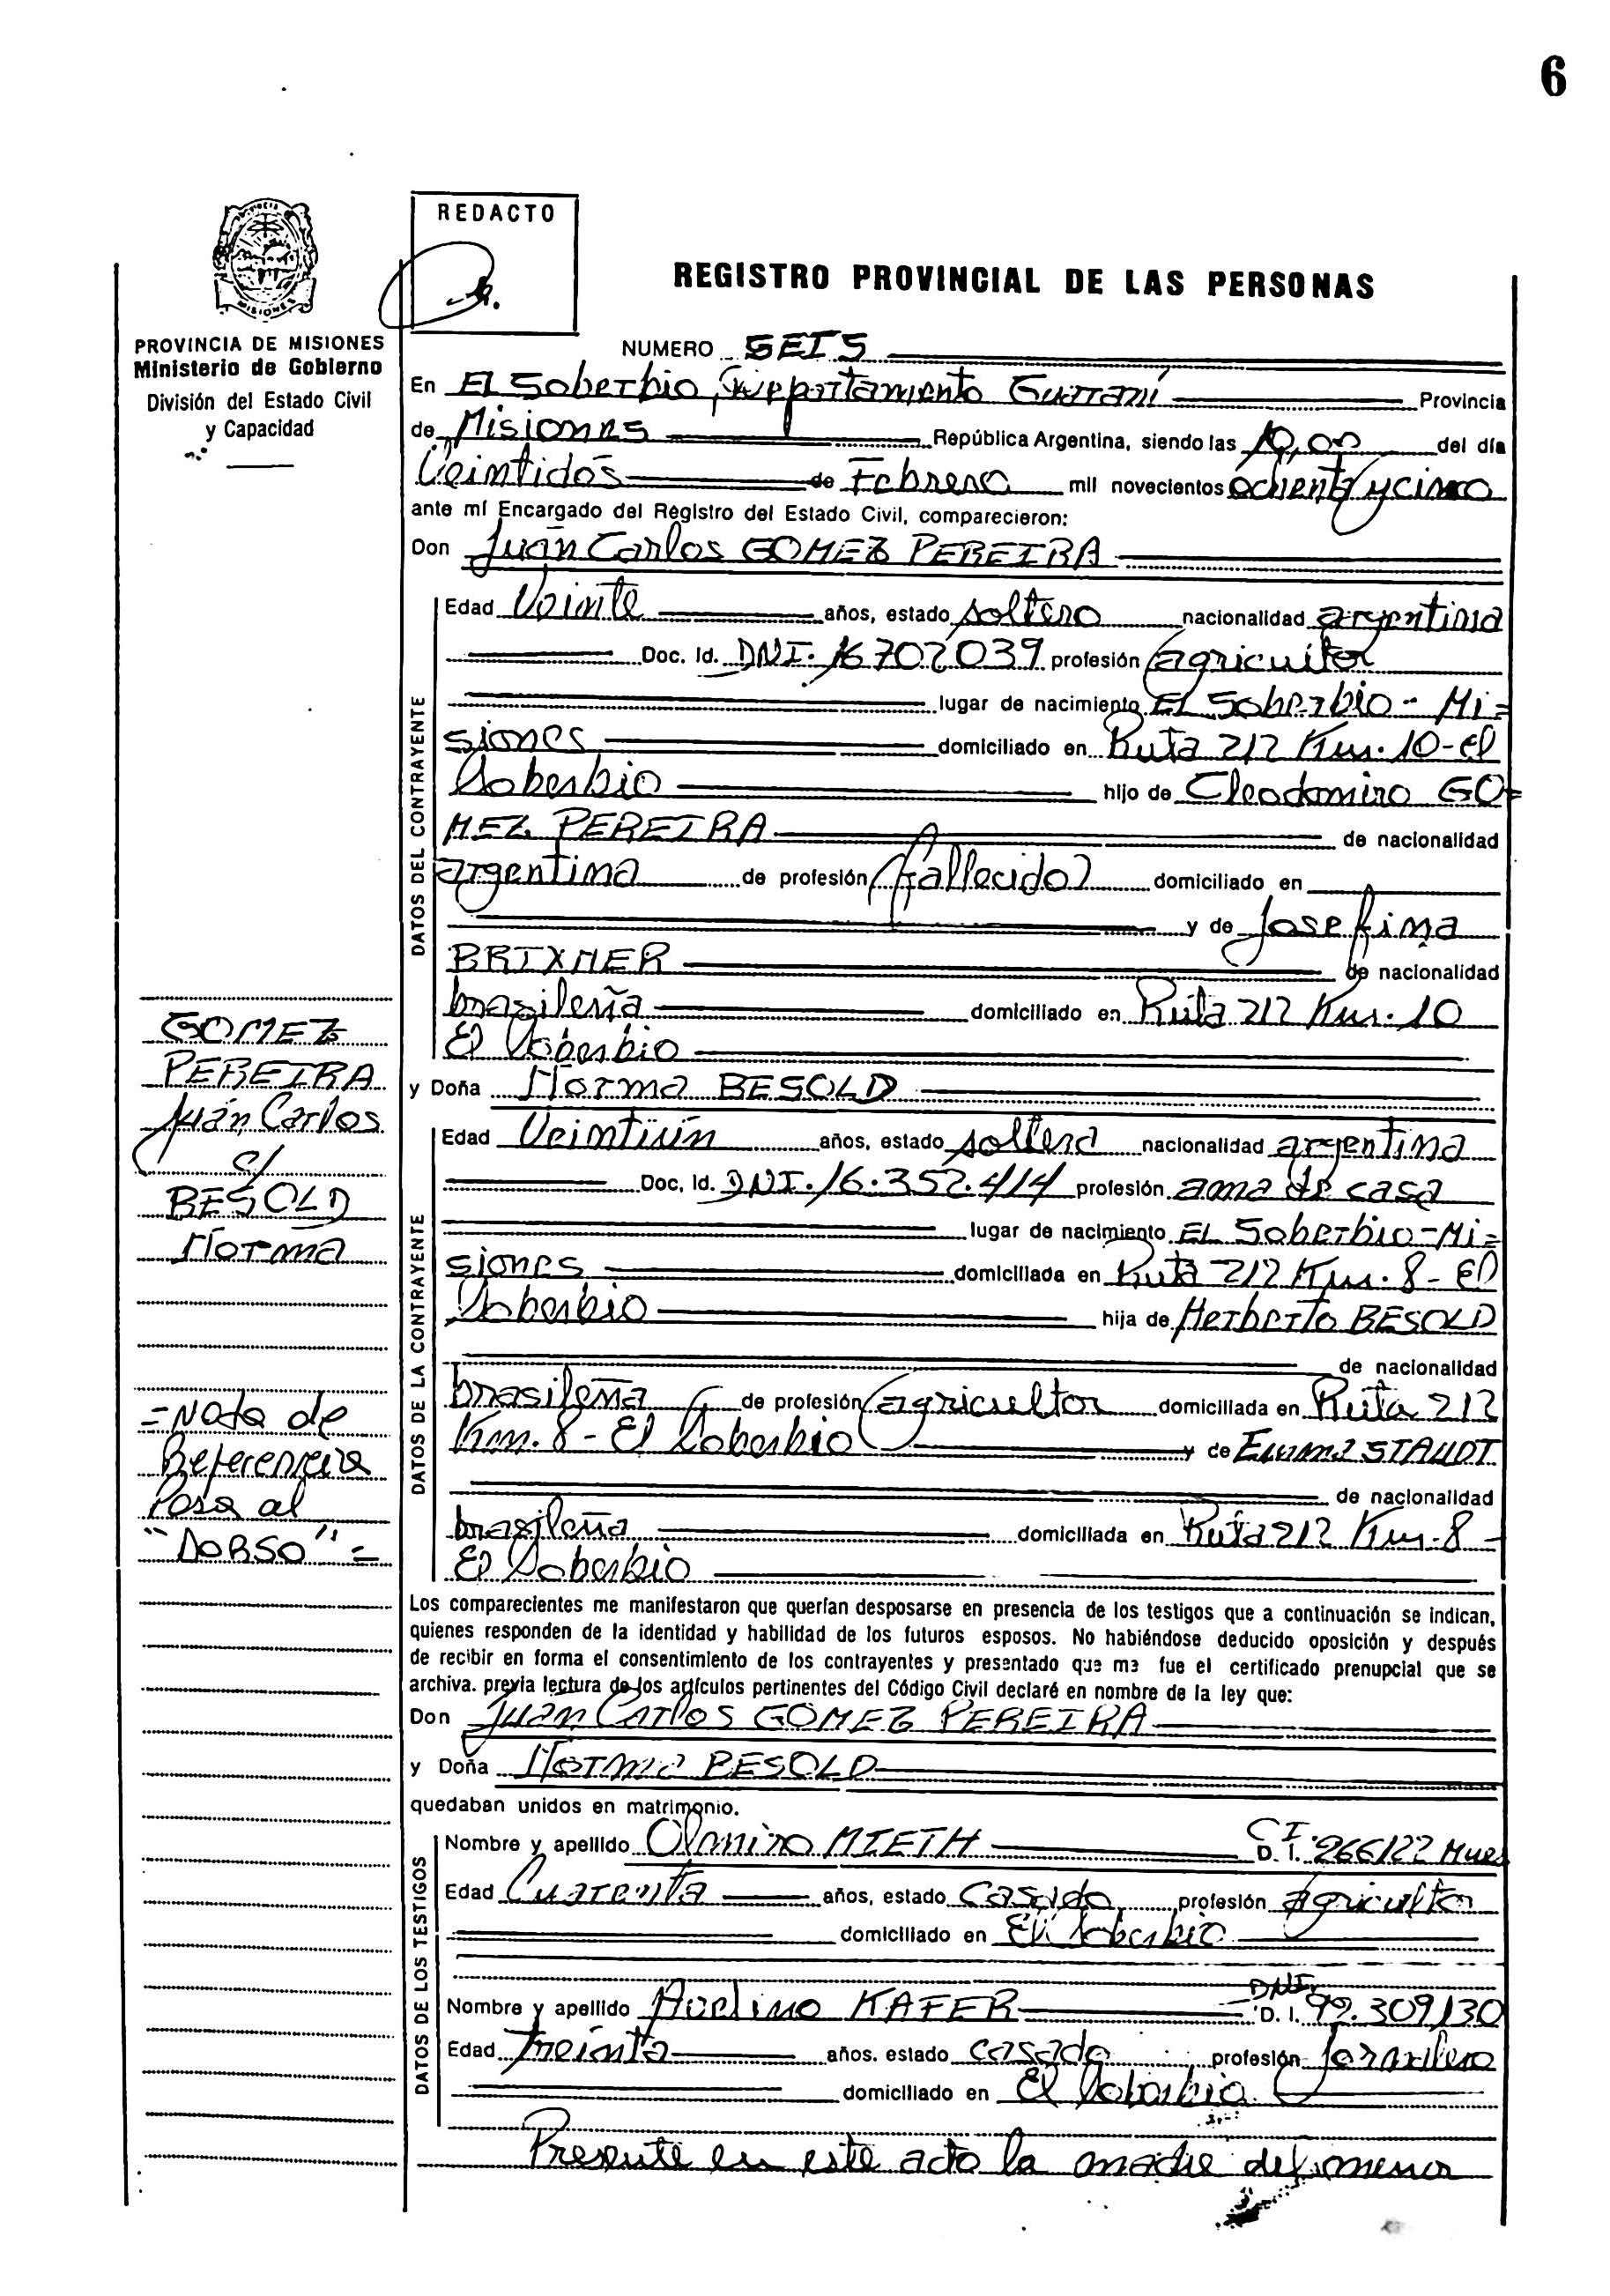 6
REDACTO
PROVINCIA DE MISIONES
Ministerio de Gobierno
División del Estado Civil
y Capacidad
REGISTRO PROVINCIAL DE LAS PERSONAS
NUMERO SEIS
En El Soberbio, Departamento Guaraní Provincia
de Misiones República Argentina, siendo las 10,00 del día
Veintidós de Febrero mil novecientos ochenta y cinco
ante mí Encargado del Registro del Estado Civil, comparecieron:
Don Juán Carlos GOMEZ PEREIRA
DATOS DEL CONTRAYENTE
Edad Veinte años, estado soltero nacionalidad argentina
Doc. Id. DNI. 16702039 profesión agricultor
lugar de nacimiento El Soberbio - Mi=
siones domiciliado en Ruta 212 Km. 10-El
Soberbio hijo de Cleodomiro GO=
MEZ PEREIRA de nacionalidad
argentina de profesión (fallecido) domiciliado en
y de Josefina
BRIXNER de nacionalidad
brasileña domiciliado en Ruta 212 Km. 10
El Soberbio
y Doña Norma BESOLD
DATOS DE LA CONTRAYENTE
Edad Veintiún años, estado soltera nacionalidad argentina
Doc. Id. DNI. 16.352.414 profesión ama de casa
lugar de nacimiento El Soberbio-Mi=
siones domiciliada en Ruta 212 Km. 8- El
Soberbio hija de Herberto BESOLD
de nacionalidad
brasileña de profesión agricultor domiciliada en Ruta 212
Km. 8 - El Soberbio y de STAUDT
de nacionalidad
brasileña domiciliada en Ruta 212 Km. 8 -
El Soberbio
GOMEZ
PEREIRA
Juán Carlos
c/
BESOLD
Norma
=Nota de
Referencia
Pasa al
"DORSO"=
Los comparecientes me manifestaron que querían desposarse en presencia de los testigos que a continuación se indican,
quienes responden de la identidad y habilidad de los futuros esposos. No habiéndose deducido oposición y después
de recibir en forma el consentimiento de los contrayentes y presentado que me fue el certificado prenupcial que se
archiva. previa lectura de los artículos pertinentes del Código Civil declaré en nombre de la ley que:
Don Juán Carlos GOMEZ PEREIRA
y Doña Norma BESOLD
quedaban unidos en matrimonio.
DATOS DE LOS TESTIGOS
Nombre y apellido Olmiro MIETH C.I. D. I. 266122 Mnes
Edad Cuarenta años, estado Casado profesión agricultor
domiciliado en El Soberbio
Nombre y apellido Avelino KAFER DNI. D. I. 92.309130
Edad treinta años. estado casado profesión jornalero
domiciliado en El Soberbio
Presente en este acto la madre del menor